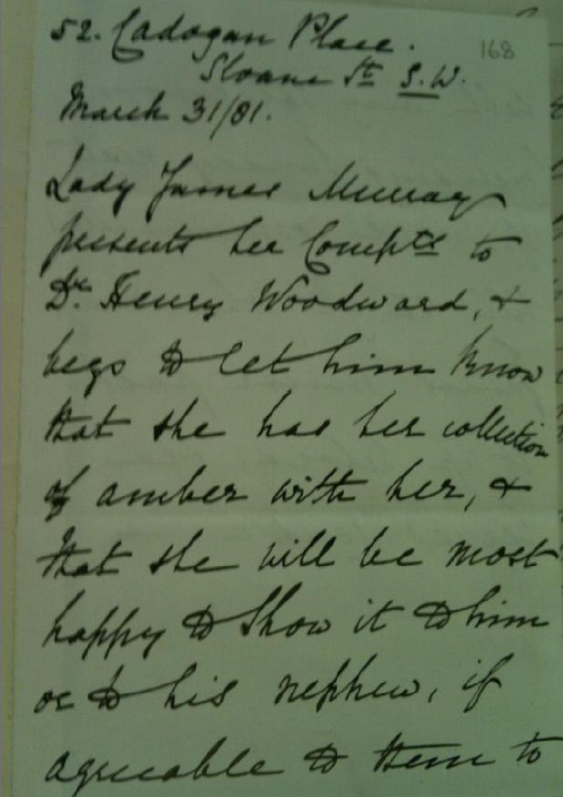 52. Cadogan Place.
168
Sloane St S.W.
March 31/81.
Lady James Murray
presents her Compts to
Dr. Henry Woodward, &
begs to let him know
that she has her collection
of amber with her, &
that she will be most
happy to show it to him
or to his nephew, if
agreeable to them to